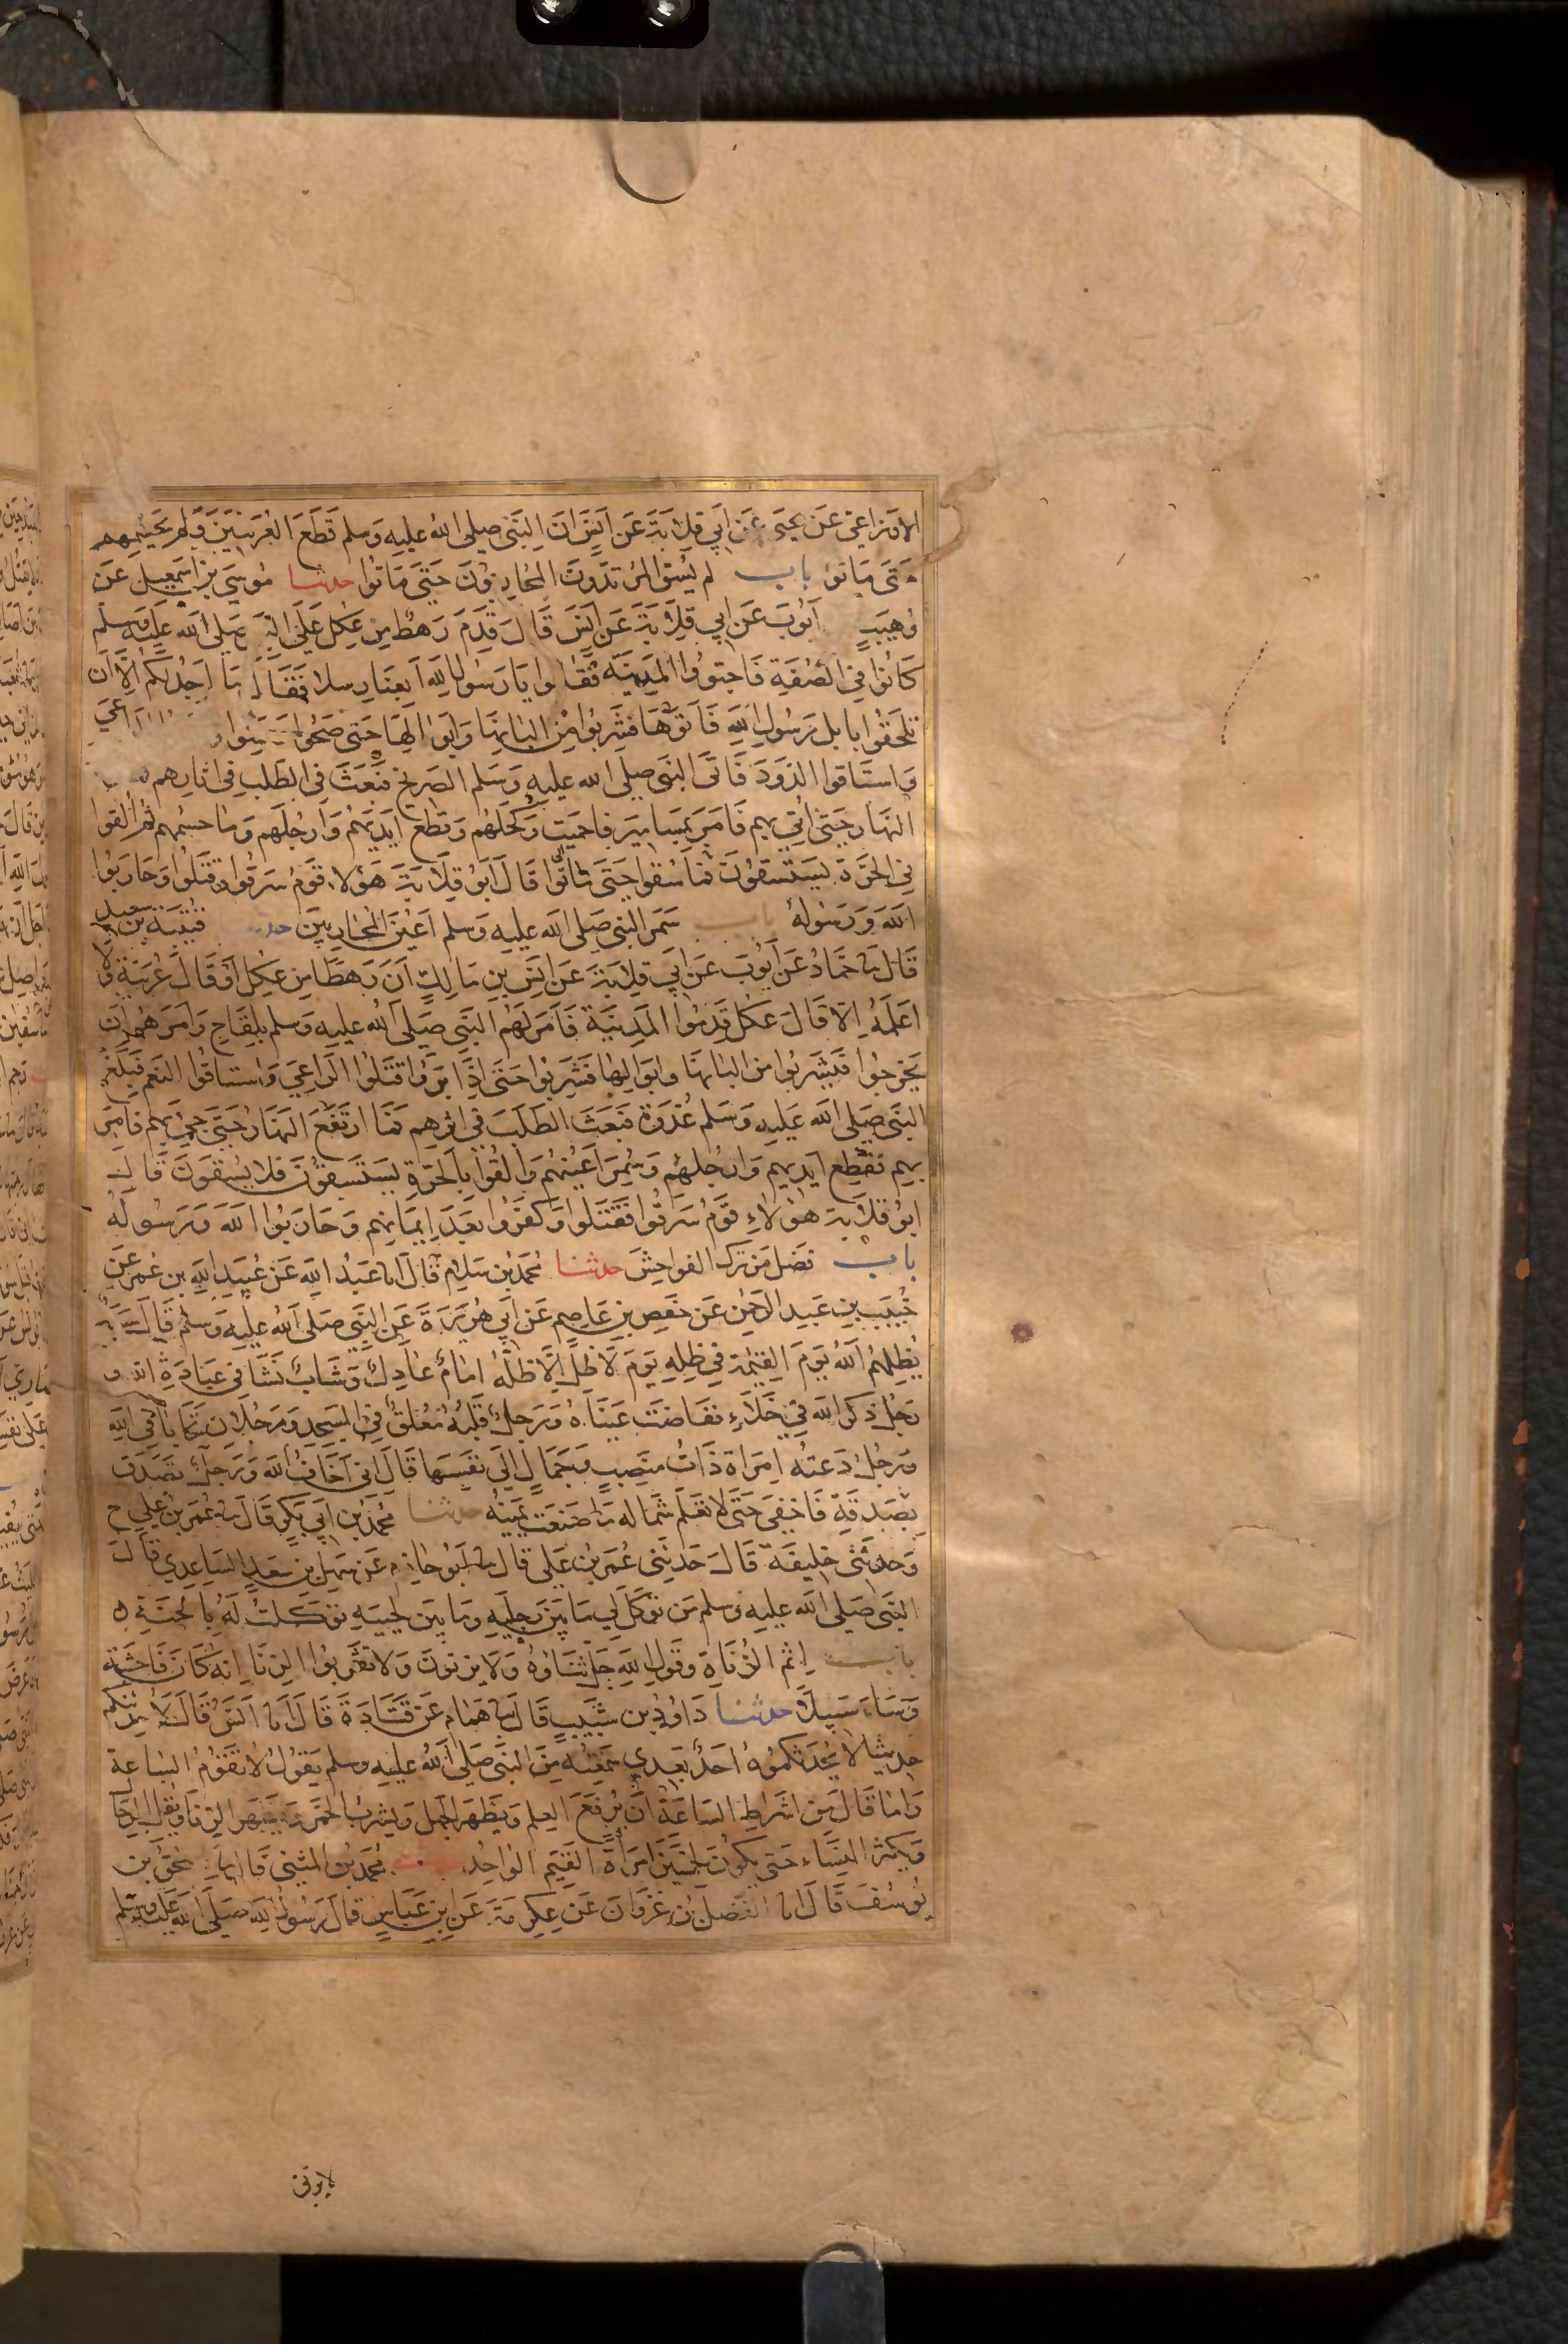 الاوزاعي عن يحيى عن ابي قلابة عن انس ان النبي صلى الله عليه وسلم قطع العرنيين ولم يحسمهم
حتى ماتوا باب لم يسق المرتدون المحاربون حتى ماتوا حدثنا موسى بن اسمعيل عن
وهيب ايوب عن ابي قلابة عن انس قال قدم رهط من عكل على النبي صلى الله عليه وسلم
كانوا في الصفة فاجتووا المدينة فقالوا يا رسول الله ابغنا رسلا فقال ما اجد لكم الا ان
تلحقوا بابل رسول الله فاتوها فشربوا من البانها وابوالها حتى صحوا وسمنوا الراعي
واستاقوا الذود فاتى النبي صلى الله عليه وسلم الصريخ فبعث في الطلب في اثارهم
النهار حتى اتي بهم فامر بمسامير فاحميت وكحلهم وقطع ايديهم وارجلهم وما حسمهم ثم القوا
في الحرة يستسقون فما سقوا حتى ماتوا قال ابو قلابة هولاء قوم سرقوا وقتلوا وحاربوا
الله ورسوله باب سمر النبي صلى الله عليه وسلم اعين المحاربين قتيبة بن سعيد
قال نا حماد عن ايوب عن ابي قلابة عن انس بن مالك ان رهطا من عكل او قال عرينة ولا
اعلمه الا قال عكل قدموا المدينة فامر لهم النبي صلى الله عليه وسلم بلقاح وامرهم ان
يخرجوا فيشربوا من البانها وابوالها فشربوا حتى اذا بروا قتلوا الراعي واستاقوا النعم فبلغ
النبي صلى الله عليه وسلم غدوة فبعث الطلب في اثرهم فما ارتفع النهار حتى جئ بهم فامر
بهم فقطع ايديهم وارجلهم وسمر اعينهم والقوا بالحرة يستسقون فلا يسقون قال
ابو قلابة هولاء قوم سرقوا فقتلوا وكفروا بعد ايمانهم وحاربوا الله ورسوله
باب فضل من ترك الفواحش حدثنا محمد بن سلام قال انا عبد الله عن عبيد الله بن عمر عن
خبيب بن عبد الرحمن عن حفص بن عاصم عن ابي هريرة عن النبي صلى الله عليه وسلم قال سبعة
يظلهم الله يوم القيمة في ظله يوم لا ظل الا ظله امام عادل وشاب نشا في عبادة الله و
رجل ذكر الله في خلاء ففاضت عيناه ورجل قلبه معلق في المسجد ورجلان تحابا في الله
ورجل دعته امراة ذات منصب وجمال الى نفسها قال اني اخاف الله ورجل تصدق
بصدقة فاخفى حتى لا تعلم شماله ما صنعت يمينه حدثنا محمد بن ابي بكر قال نا عمر بن علي ح
وحدثني خليفة قال حدثني عمر بن علي قال نا ابو حازم عن سهل بن سعد الساعدي قال
النبي صلى الله عليه وسلم من توكل لي ما بين رجليه وما بين لحييه توكلت له بالجنة ه
باب اثم الزناة وقول الله جل ثناوه ولا يزنون ولا تقربوا الزنا انه كان فاحشة
وساء سبيلا حدثنا داود بن شبيب قال نا همام عن قتادة قال انا انس قال لاحدثنكم
حديثا لا يحدثكموه احد بعدي سمعته من النبي صلى الله عليه وسلم يقول لا تقوم الساعة
واما قال من اشراط الساعة ان يرفع العلم ويظهر الجهل ويشرب الخمر ويظهر الزنا ويقل الرجال
ويكثر النساء حتى يكون لخمسين امراة القيم الواحد محمد بن المثنى قال نا اسحق بن
يوسف قال انا الفضيل بن غزوان عن عكرمة عن ابن عباس قال رسول الله صلى الله عليه وسلم
لا يزني